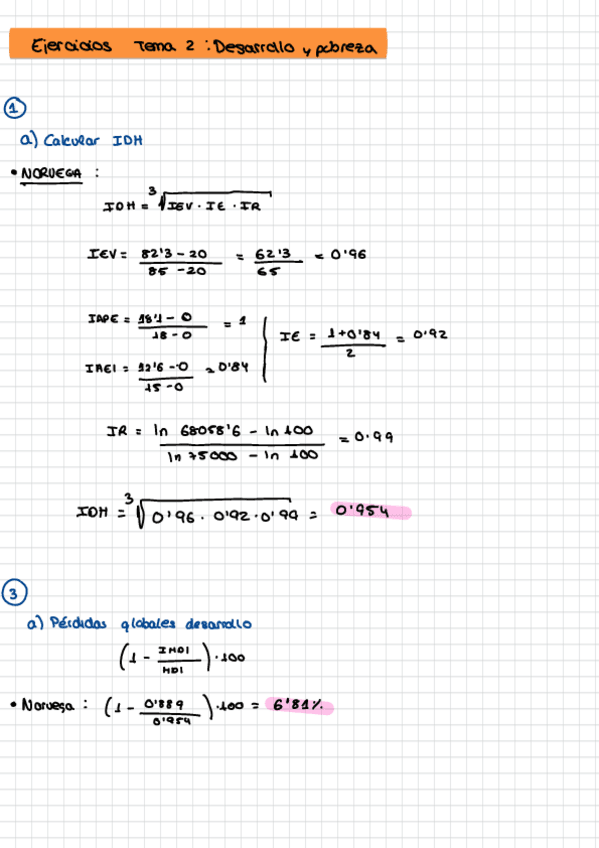 Ejercicios Tema 2 : Desarrollo y pobreza
1
a) Calcular IDH
• NORUEGA :
IDH = ³√IEV · IE · IR
IEV = 82'3 - 20 / 85 - 20 = 62'3 / 65 = 0'96
IAPE = 18'1 - 0 / 18 - 0 = 1
IE = 1+0'84 / 2 = 0'92
IAEI = 12'6 - 0 / 15 - 0 = 0'84
IR = ln 68058'6 - ln 100 / ln 75000 - ln 100 = 0.99
IDH = ³√0'96 · 0'92 · 0'99 = 0'954
3
a) Pérdidas globales desarrollo
(1 - IHDI / HDI) · 100
• Noruega : (1 - 0'889 / 0'954) · 100 = 6'81%